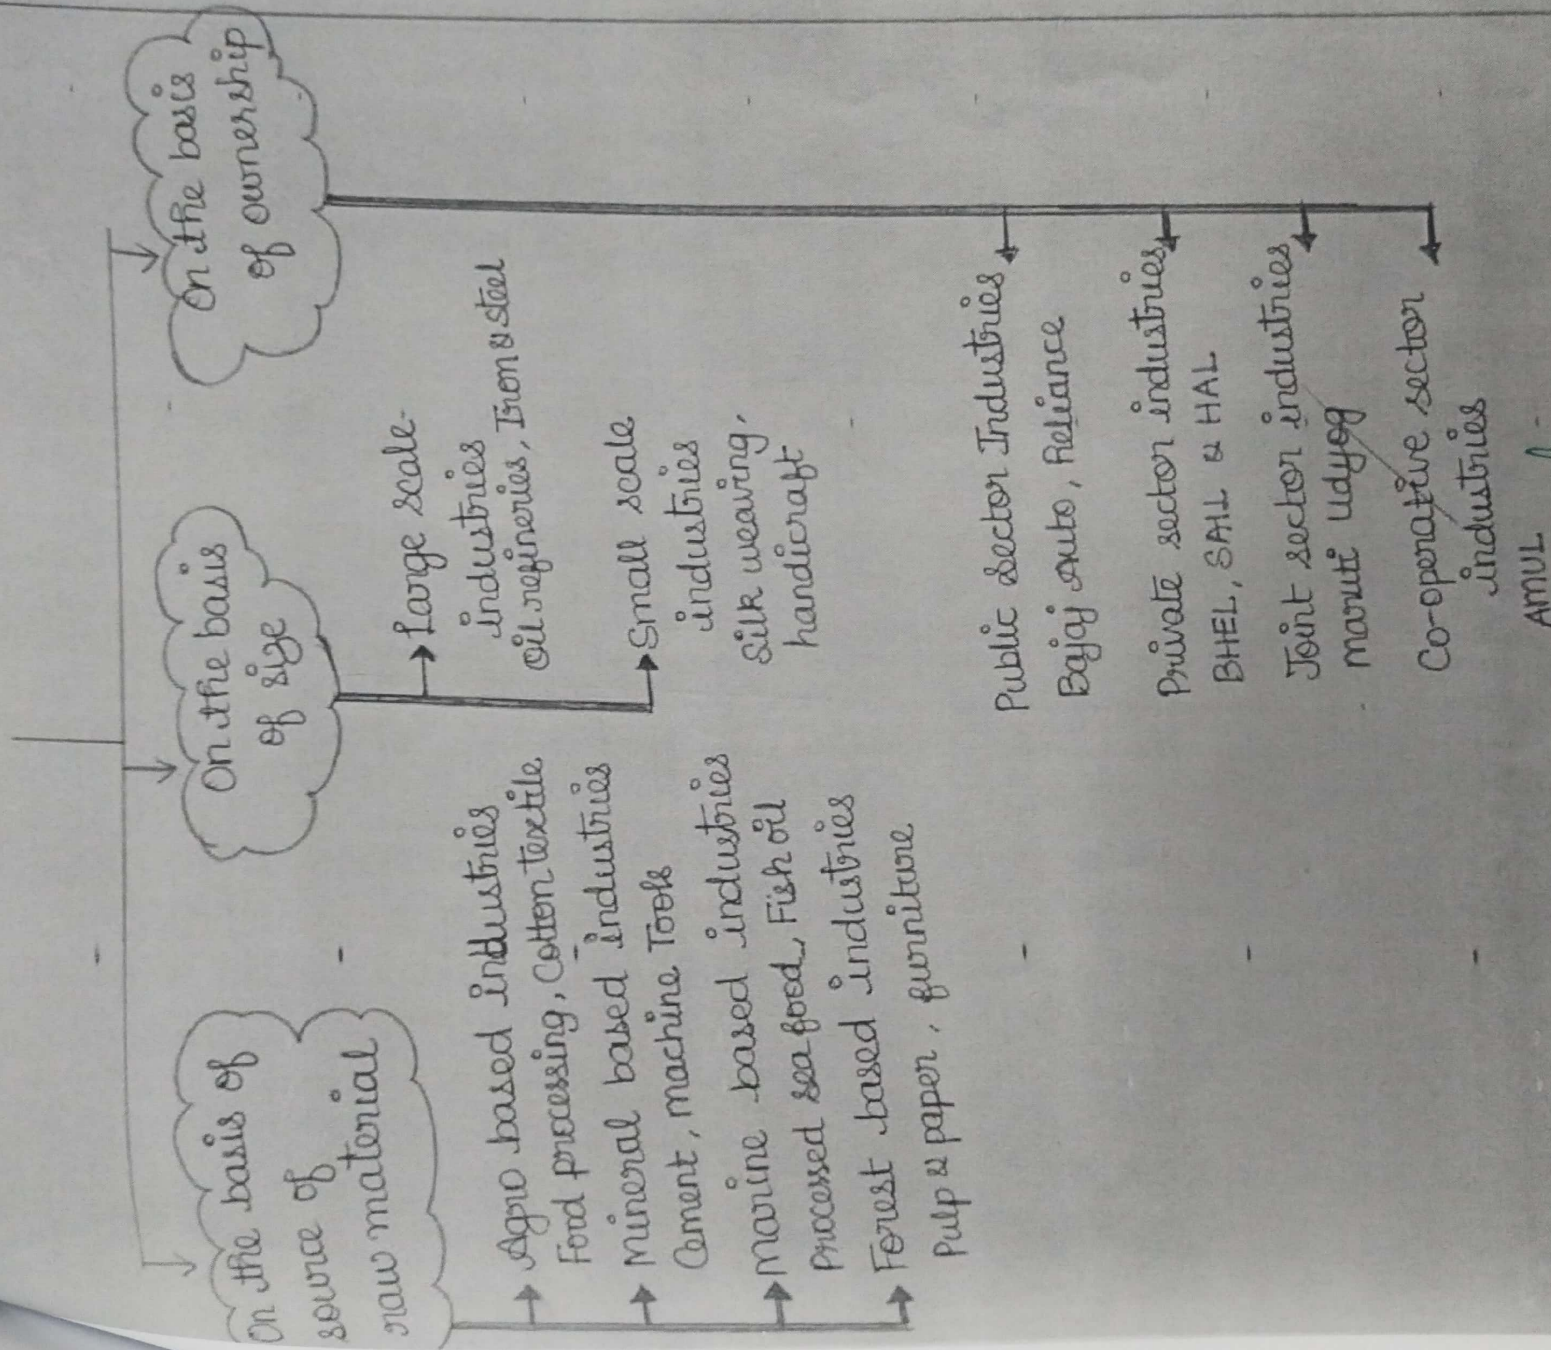 On the basis of
source of
raw material
Agro based industries
Food processing, Cotton textile
Mineral based industries
Cement, machine Tools
marine based industries
Processed sea food, Fish oil
Forest based industries
Pulp & paper, furniture
On the basis
of size
Large scale
industries
oil refineries, Iron & steel
Small scale
industries
Silk weaving,
handicraft
On the basis
of ownership
Public Sector Industries
Bajaj Auto, Reliance
Private sector industries
BHEL, SAIL & HAL
Joint sector industries
maruti udyog
Co-operative sector
industries
AMUL